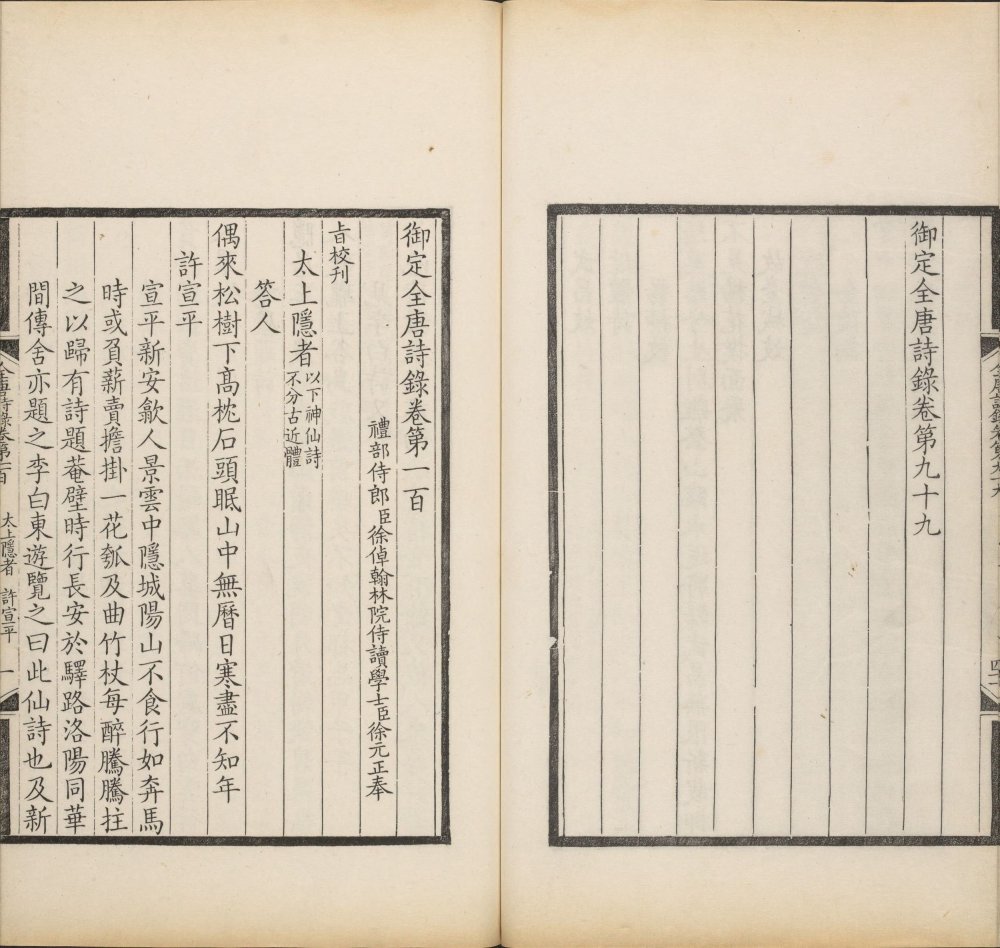 御定全唐詩錄卷第九十九
御定全唐詩錄卷第一百
禮部侍郎臣徐倬翰林院侍讀學士臣徐元正奉
旨校刋
太上隱者以下神仙詩不分古近體
答人
偶來松樹下髙枕石頭眠山中無曆日寒盡不知年
許宣平
宣平新安歙人景雲中隱城陽山不食行如奔馬
時或負薪賣擔掛一花瓠及曲竹杖每醉騰騰拄
之以歸有詩題菴壁時行長安於驛路洛陽同華
間傳舍亦題之李白東遊覽之曰此仙詩也及新
太上隱者 許宣平 一